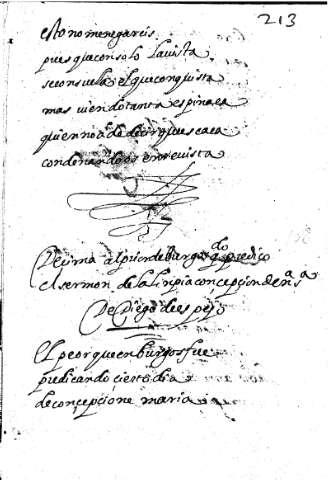 213
esto no me negareis
pues que con solo la vista
se consuela el que conquista
mas viendo tanta espinaca
quien no a de decir que es caca
condenandoos en revista
Decima al prior de Burgos qdo predico
el sermon de la linpia concepcion de nª sª
De Diego de espejo
El peor que en burgos fue
predicando çierto dia
de conçepçion e maria